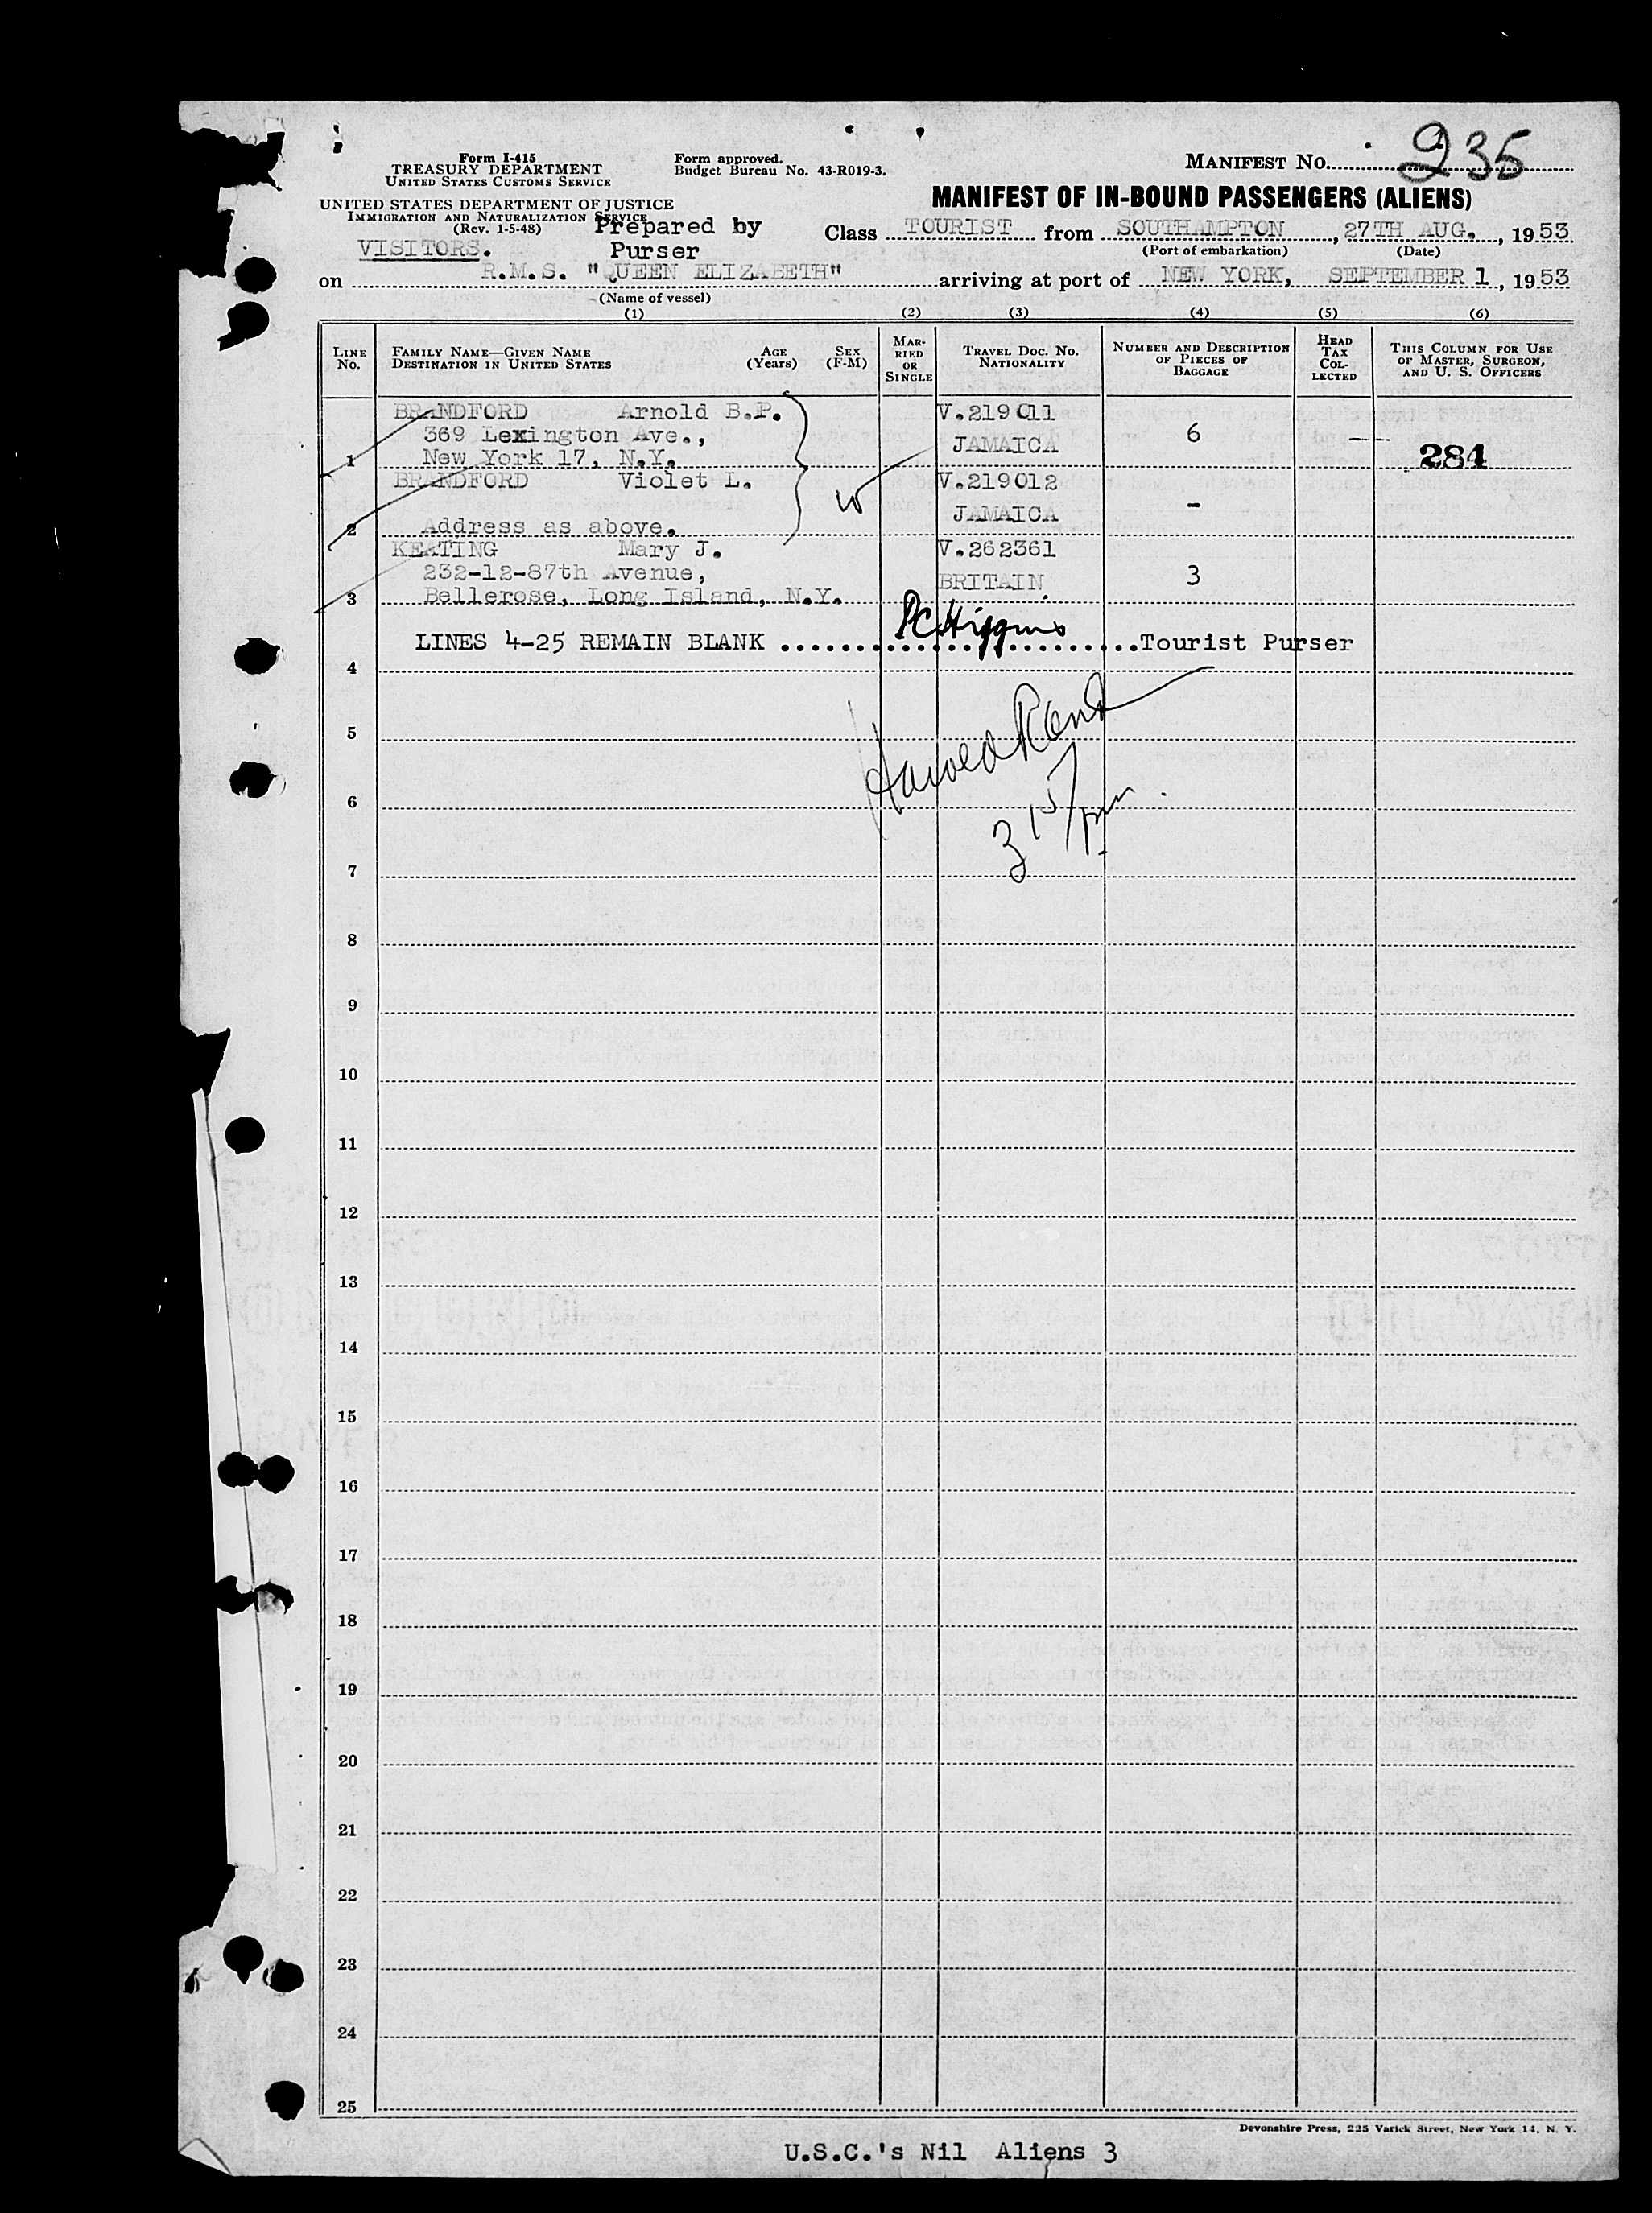 Form I-415
TREASURY DEPARTMENT
UNITED STATES CUSTOMS SERVICE
Form approved.
Budget Bureau No. 43-R019-3.
MANIFEST No. 235
UNITED STATES DEPARTMENT OF JUSTICE
IMMIGRATION AND NATURALIZATION SERVICE
(Rev. 1-5-48)
Prepared by
Purser
MANIFEST OF IN-BOUND PASSENGERS (ALIENS)
Class TOURIST from SOUTHAMPTON, 27TH AUG., 1953
(Port of embarkation) (Date)
VISITORS.
on R.M.S. "QUEEN ELIZABETH" arriving at port of NEW YORK, SEPTEMBER 1, 1953
(Name of vessel)
(1) (2) (3) (4) (5) (6)
LINE No.
FAMILY NAME—GIVEN NAME
DESTINATION IN UNITED STATES
AGE (Years)
SEX (F-M)
MARRIED OR SINGLE
TRAVEL DOC. NO.
NATIONALITY
NUMBER AND DESCRIPTION OF PIECES OF BAGGAGE
HEAD TAX COLLECTED
THIS COLUMN FOR USE OF MASTER, SURGEON, AND U. S. OFFICERS
BRANDFORD Arnold B.P. V.219011
369 Lexington Ave., JAMAICA 6 —
1 New York 17, N.Y. 284
BRANDFORD Violet L. V.219012
JAMAICA -
2 Address as above.
KEATING Mary J. V.262361
232-12-87th Avenue, BRITAIN. 3
3 Bellerose, Long Island, N.Y.
LINES 4-25 REMAIN BLANK ........ PC Higgins ........Tourist Purser
4
5
6
3 15/pm
7
8
9
10
11
12
13
14
15
16
17
18
19
20
21
22
23
24
25
Devonshire Press, 225 Varick Street, New York 14, N. Y.
U.S.C.'s Nil Aliens 3